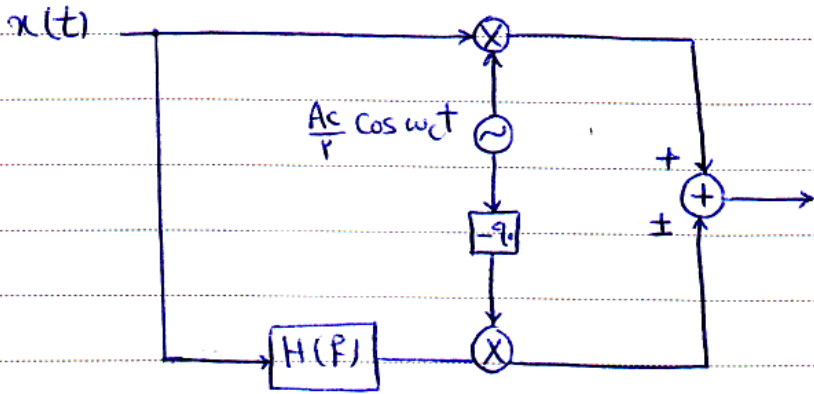 x(t)
×
Ac/۲ Cos ωct
~
+
+
±
-۹۰
H(f)
×